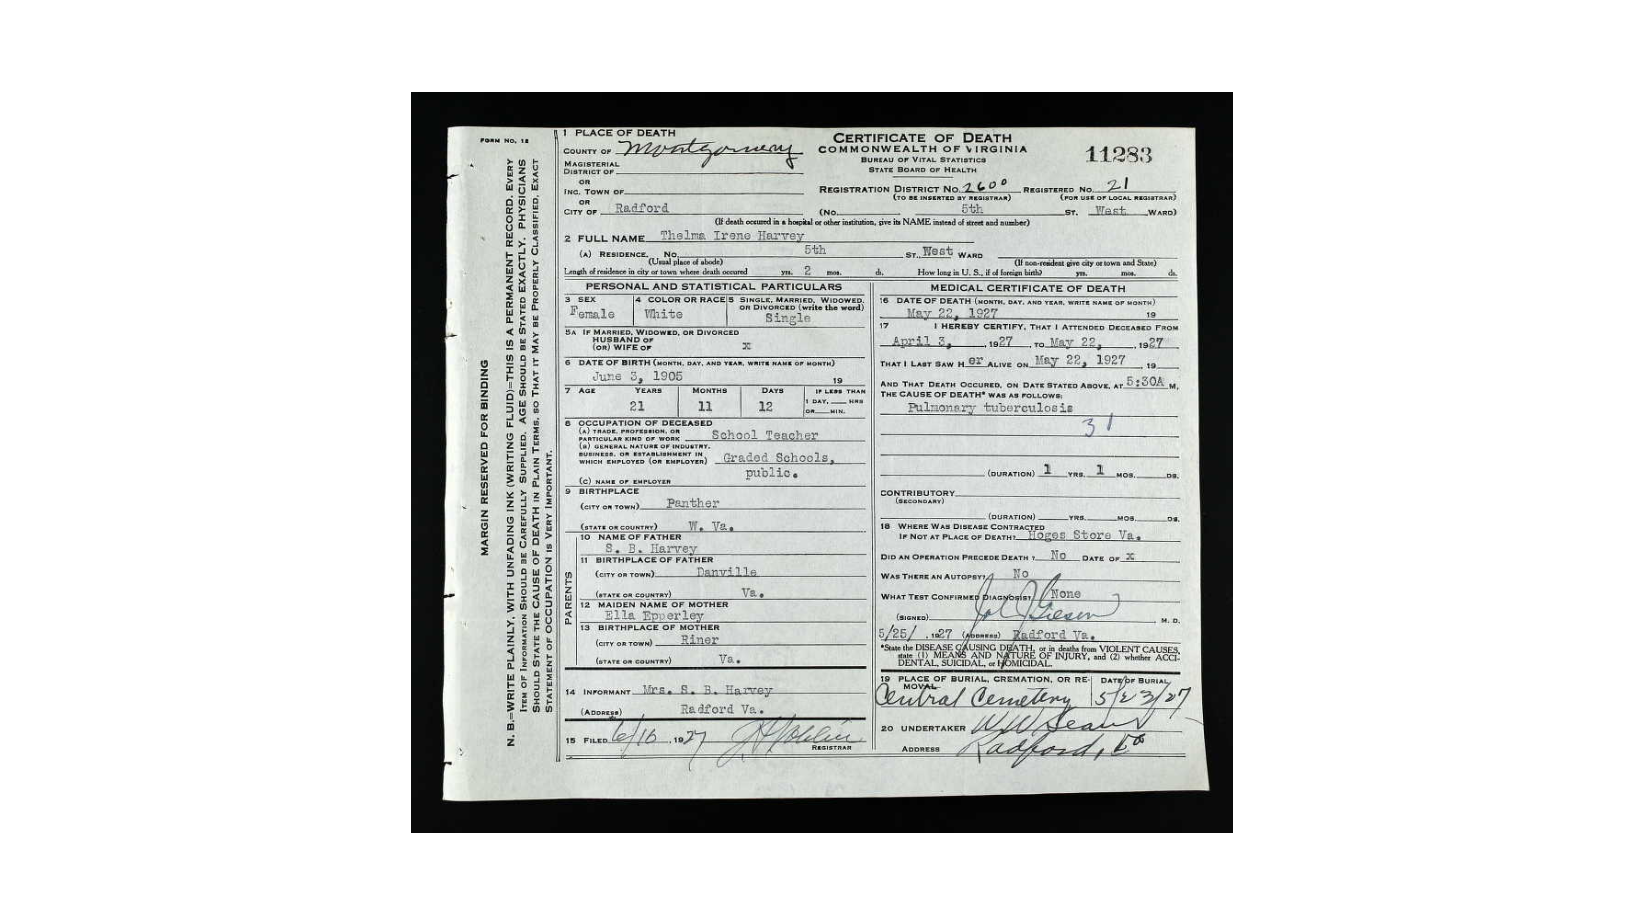 FORM NO. 12
MARGIN RESERVED FOR BINDING
N. B.=WRITE PLAINLY, WITH UNFADING INK (WRITING FLUID)=THIS IS A PERMANENT RECORD. EVERY
ITEM OF INFORMATION SHOULD BE CAREFULLY SUPPLIED. AGE SHOULD BE STATED EXACTLY. PHYSICIANS
SHOULD STATE THE CAUSE OF DEATH IN PLAIN TERMS, SO THAT IT MAY BE PROPERLY CLASSIFIED. EXACT
STATEMENT OF OCCUPATION IS VERY IMPORTANT.
1 PLACE OF DEATH
COUNTY OF Montgomery
MAGISTERIAL
DISTRICT OF
OR
INC. TOWN OF
OR
CITY OF Radford
CERTIFICATE OF DEATH
COMMONWEALTH OF VIRGINIA
BUREAU OF VITAL STATISTICS
STATE BOARD OF HEALTH
11283
REGISTRATION DISTRICT NO. 2600 REGISTERED NO. 21
(TO BE INSERTED BY REGISTRAR) (FOR USE OF LOCAL REGISTRAR)
(No. 5th ST. West WARD)
(If death occured in a hospital or other institution, give its NAME instead of street and number)
2 FULL NAME Thelma Irene Harvey
(A) RESIDENCE, No. 5th ST. West WARD
(Usual place of abode) (If non-resident give city or town and State)
Length of residence in city or town where death occured yrs. 2 mos. ds. How long in U. S., if of foreign birth? yrs. mos. ds.
PERSONAL AND STATISTICAL PARTICULARS
3 SEX Female
4 COLOR OR RACE White
5 SINGLE, MARRIED, WIDOWED,
OR DIVORCED (write the word)
Single
5A IF MARRIED, WIDOWED, OR DIVORCED
HUSBAND OF
(OR) WIFE OF x
6 DATE OF BIRTH (MONTH, DAY, AND YEAR, WRITE NAME OF MONTH)
June 3, 1905 19
7 AGE YEARS MONTHS DAYS IF LESS THAN
21 11 12 1 DAY, HRS
OR MIN.
8 OCCUPATION OF DECEASED
(A) TRADE, PROFESSION, OR
PARTICULAR KIND OF WORK School Teacher
(B) GENERAL NATURE OF INDUSTRY,
BUSINESS, OR ESTABLISHMENT IN
WHICH EMPLOYED (OR EMPLOYER) Graded Schools,
public.
(C) NAME OF EMPLOYER
9 BIRTHPLACE
(CITY OR TOWN) Panther
(STATE OR COUNTRY) W. Va.
PARENTS
10 NAME OF FATHER
S. B. Harvey
11 BIRTHPLACE OF FATHER
(CITY OR TOWN) Danville
(STATE OR COUNTRY) Va.
12 MAIDEN NAME OF MOTHER
Ella Epperley
13 BIRTHPLACE OF MOTHER
(CITY OR TOWN) Riner
(STATE OR COUNTRY) Va.
14 INFORMANT Mrs. S. B. Harvey
(ADDRESS) Radford Va.
15 FILED 6/16, 1927
REGISTRAR
MEDICAL CERTIFICATE OF DEATH
16 DATE OF DEATH (MONTH, DAY, AND YEAR, WRITE NAME OF MONTH)
May 22, 1927 19
17 I HEREBY CERTIFY, THAT I ATTENDED DECEASED FROM
April 3, 1927, TO May 22, 1927
THAT I LAST SAW H er ALIVE ON May 22, 1927 19
AND THAT DEATH OCCURED, ON DATE STATED ABOVE, AT 5:30A M.
THE CAUSE OF DEATH* WAS AS FOLLOWS:
Pulmonary tuberculosis
31
(DURATION) 1 YRS. 1 MOS. DS.
CONTRIBUTORY
(SECONDARY)
(DURATION) YRS. MOS. DS.
18 WHERE WAS DISEASE CONTRACTED
IF NOT AT PLACE OF DEATH? Hoges Store Va.
DID AN OPERATION PRECEDE DEATH? No DATE OF x
WAS THERE AN AUTOPSY? No
WHAT TEST CONFIRMED DIAGNOSIS? None
(SIGNED) M. D.
5/25/, 1927 (ADDRESS) Radford Va.
*State the DISEASE CAUSING DEATH, or in deaths from VIOLENT CAUSES,
state (1) MEANS AND NATURE OF INJURY, and (2) whether ACCI-
DENTAL, SUICIDAL, or HOMICIDAL.
19 PLACE OF BURIAL, CREMATION, OR RE-
MOVAL DATE OF BURIAL
Central Cemetery 5/23/27
20 UNDERTAKER
ADDRESS Radford, Va